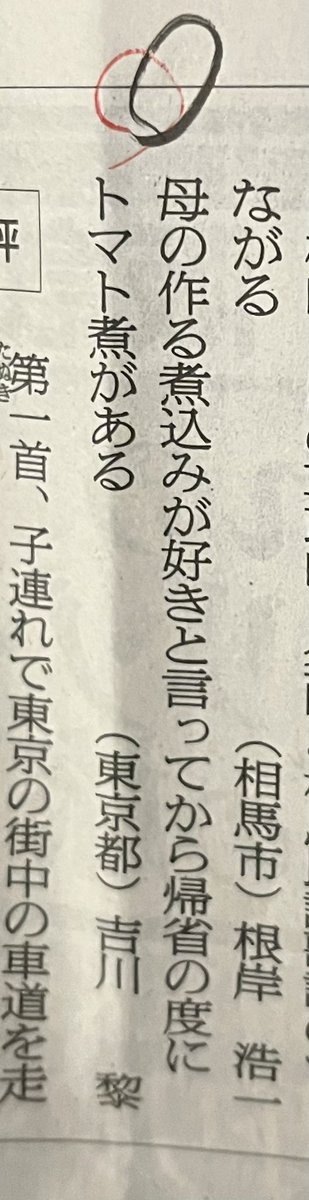 ながる
（相馬市）根岸　浩一
母の作る煮込みが好きと言ってから帰省の度に
トマト煮がある
（東京都）吉川　黎
評
たぬき
第一首、子連れで東京の街中の車道を走